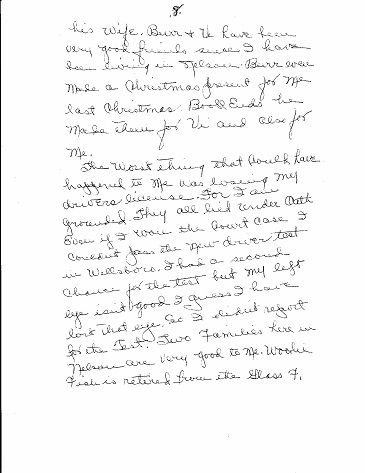 8.
his Wife. Burr & Vi have been
very good friends since I have
been living in Nelson. Burr even
Made a Christmas present for Me
last Christmas. Book Ends he
Made them for Vi and also for
Me.
The Worst thing that Could have
happened to Me was loosing My
drivers license. For I am
grounded. They all lied under Oath
Even if I won the Court Case I
Couldnt pass the new driver test
in Wellsboro. I had a second
Chance for the test but My left
eye isn't good I guess I have
lost that eye. So I didnt report
for the Test. Two Families here in
Nelson are very good to Me. Woodie
Fish is retered from the Glass F.